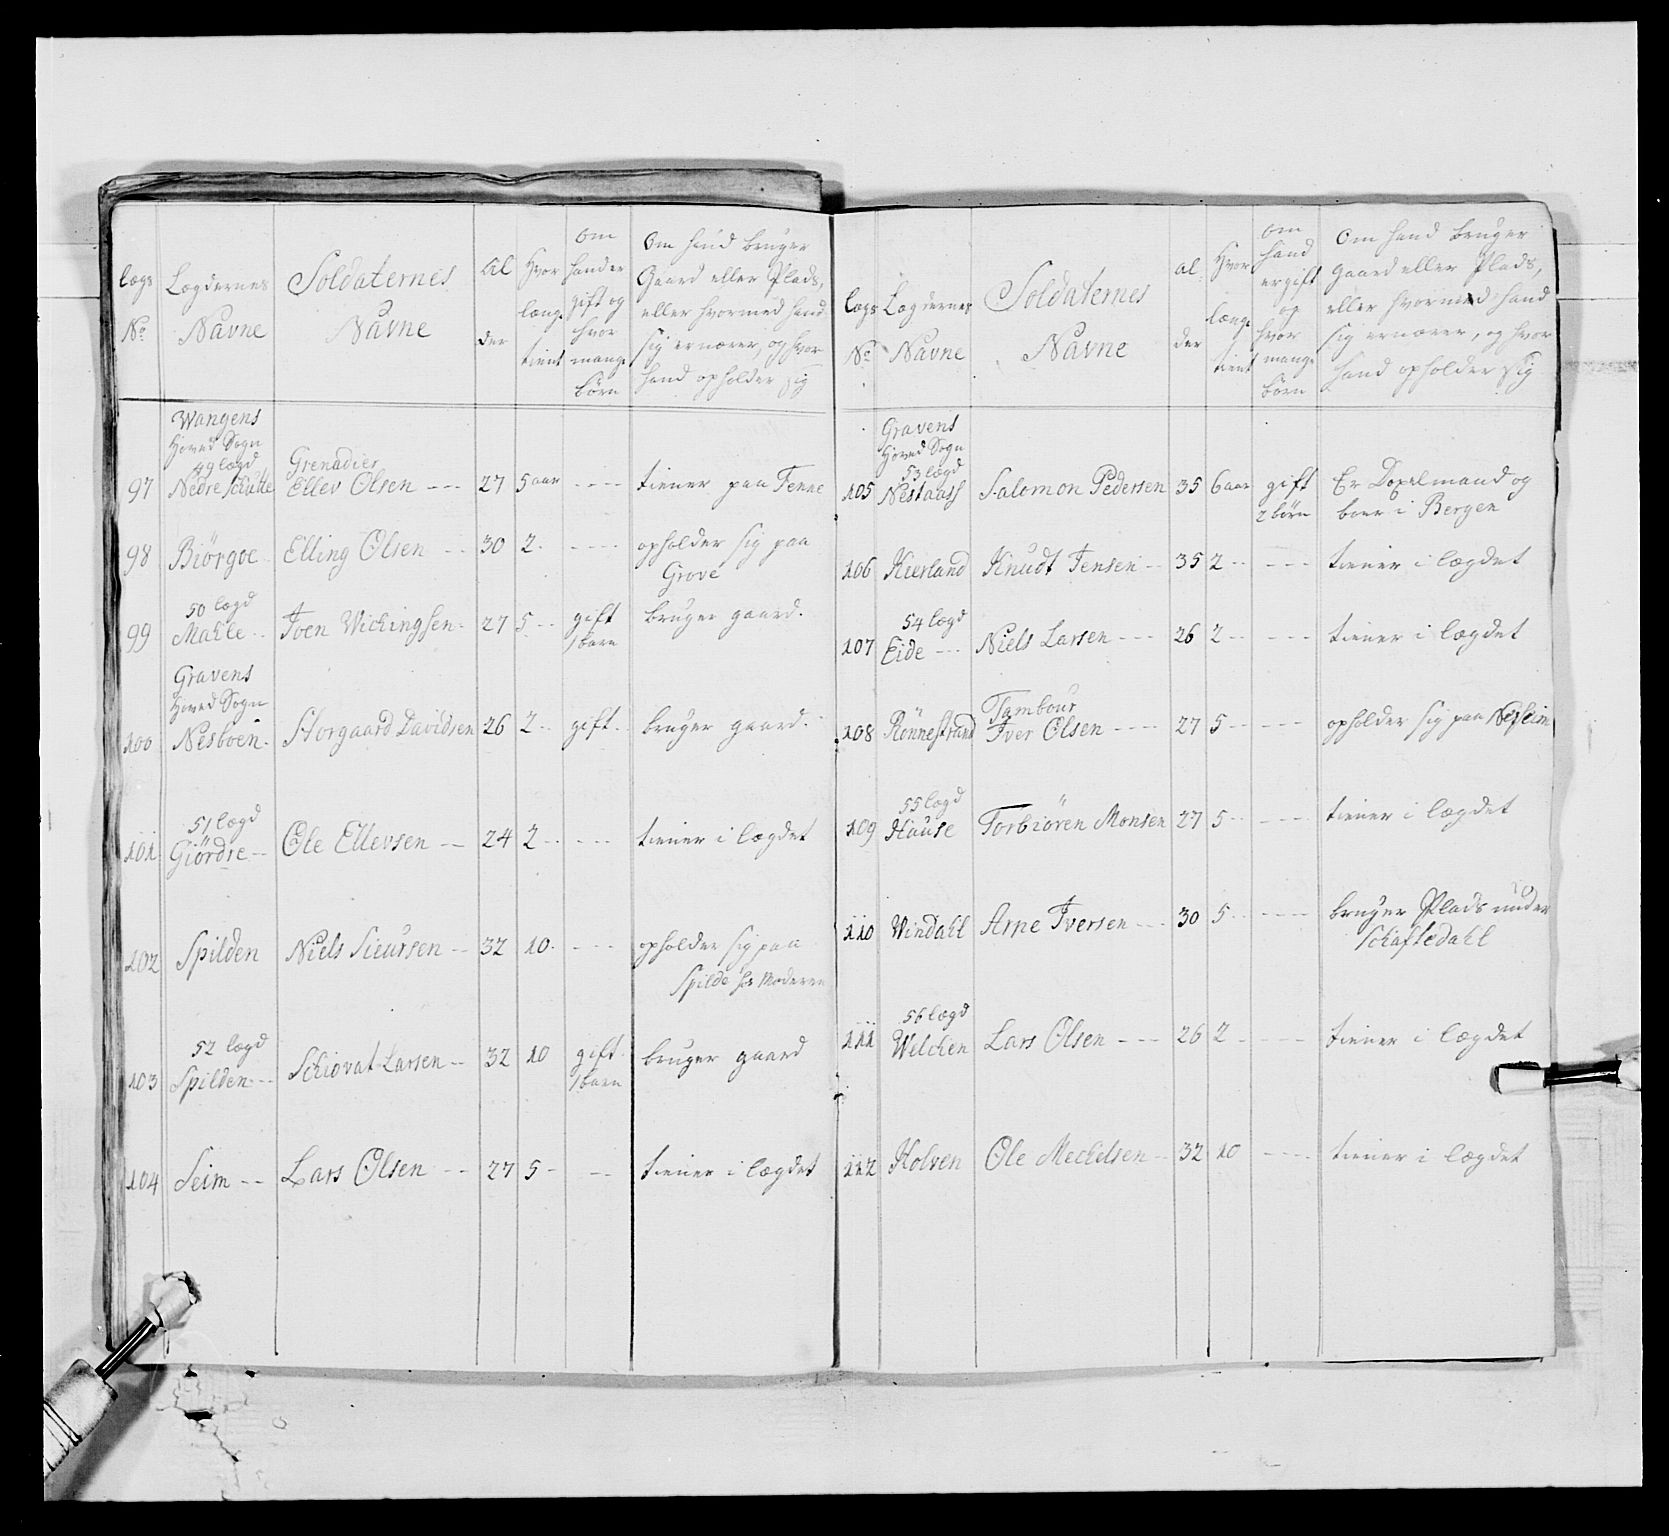 Lægs No | Lægdernes Navne | Soldaternes Navne | Alder | Hvor længe tient | Om hand er gift og hvor mange börn | Om hand bruger Gaard eller Plads, eller hvormed hand sig ernærer, og hvor hand opholder sig
Wangens
Hoved Sogn
49 lægd
Grenadier
97 Nedre Schutle Ellev Olsen --- 27 5 aar ---- tiener paa Fenne
98 Biörgoe Elling Olsen -- 30 2. ---- opholder sig paa
Grove
50 lægd
99 Mahle -- Iven Wichingsen. 27 5 -- gift bruger gaard.
1 barn
Gravens
Hoved Sogn
100 Nesboen. Storgaard Davidsen 26 2 -- gift -- bruger gaard.
51 lægd
101 Giördre -- Ole Ellevsen -- 24 2 -- --- tiener i lægdet
102 Spilden Niels Sieursen -- 32 10. --- opholder sig paa
Spilde hos Moderen
52 lægd
103 Spilden -- Schiovat Larsen -- 32 10 gift. bruger gaard
1 barn
104 Seim -- Lars Olsen -- 27 5 - -- tiener i lægdet
Lægs No | Lægdernes Navne | Soldaternes Navne | Alder | Hvor længe tient | Om hand er gift og hvor mange börn | Om hand bruger Gaard eller Plads, eller hvormed hand sig ernærer, og hvor hand opholder sig
Gravens
Hoved Sogn
53 lægd
105 Nestaass Salomon Pedersen 35 6 aar gift Er Dragmand og
2 börn boer i Bergen
106 Kierland Knudt Jensen -- 35 2 -- --- tiener i lægdet
54 lægd
107 Eide --- Niels Larsen --- 26 2 -- --- tiener i lægdet
Tambour
108 Rönnestrand Iver Olsen ---- 27 5 -- --- opholder sig paa Nesheim
55 lægd
109 Hause Torbiören Monsen 27 5 -- --- tiener i lægdet
110 Windahl Arne Iversen --- 30 5 -- ---- bruger Plads under
Schaftedahl
56 lægd
111 Wilchen Lars Olsen --- 26 2 ---- tiener i lægdet
112 Holven Ole Mechelsen -- 32 10 ---- tiener i lægdet